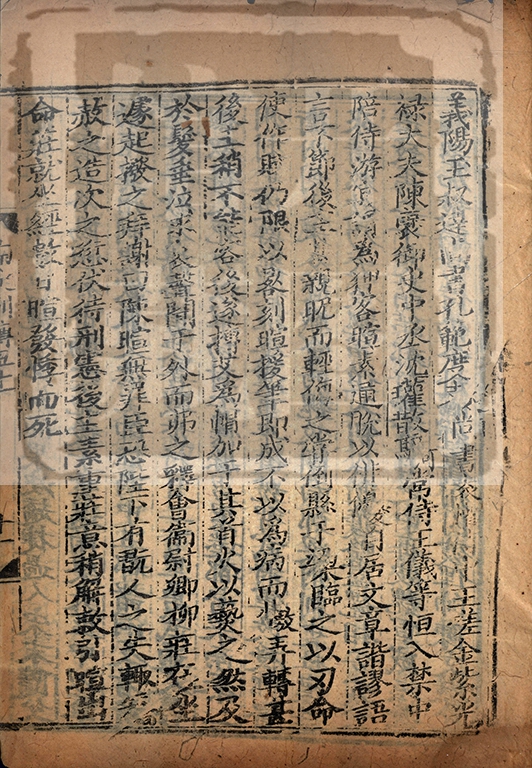 義陽王叔達尚書孔範度支尚書袁權侍中王瑳金紫光
祿大夫陳褒御史中丞沈瓘散騎常侍王儀等恒入禁中
陪侍游宴謂為狎客暄素通脫以俳優自居文章諧謬語
言不節後主甚親昵而輕侮之嘗倒懸于梁臨之以刃命
使作賦仍限以晷刻暄援筆即成不以為病而慠弄轉甚
後主稍不能容後遂摶艾為帽加于其首火以爇之然及
於髮垂泣求哀聲聞于外而弗之釋會衛尉卿柳莊在坐
遽起撥之拜謝曰陳暄無罪臣恐陛下有翫人之失輒矯
赦之造次之愆伏待刑憲後主素重莊意稍解敕引暄出
命莊就坐經數日暄發悸而死